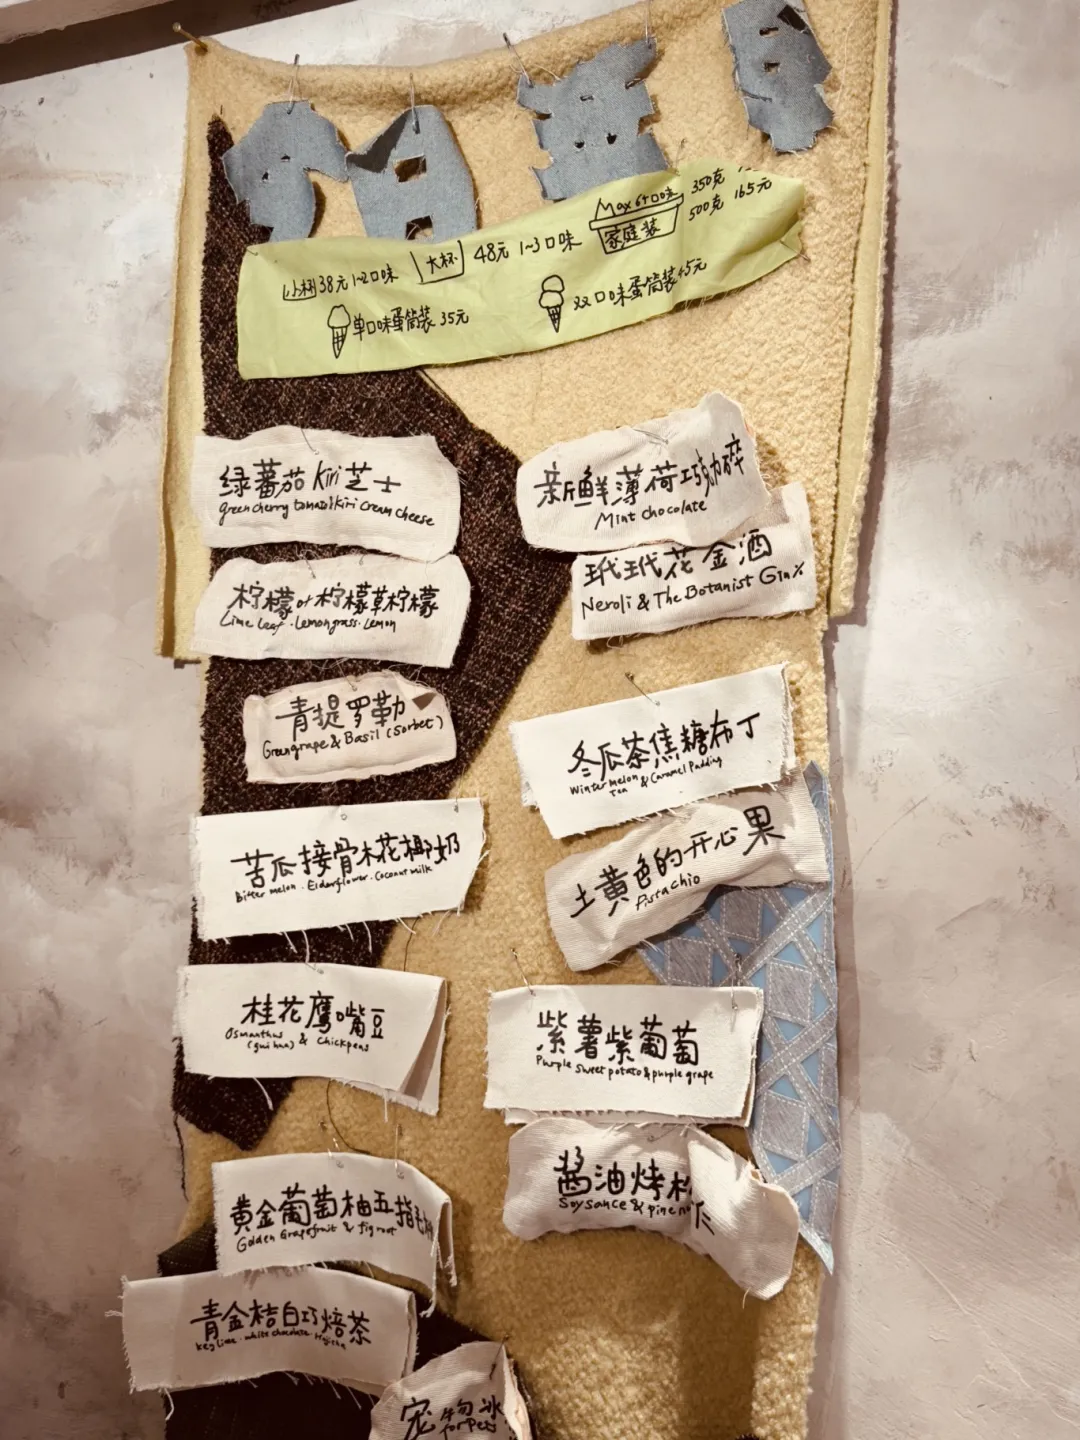 小杯 38元 1~2口味
大杯 48元 1~3口味
Max 6个口味
家庭装
350克
500克 165元
单口味蛋筒装 35元
双口味蛋筒装 45元
绿蕃茄 kiri 芝士
green cherry tomato & kiri cream cheese
柠檬叶柠檬草柠檬
Lime leaf · Lemongrass · Lemon
青提罗勒
Green grape & Basil (Sorbet)
苦瓜接骨木花椰奶
Bitter melon · Elderflower · Coconut milk
桂花鹰嘴豆
Osmanthus & Chickpeas
(gui hua)
黄金葡萄柚五指毛
Golden Grapefruit & fig root
青金桔白巧焙茶
key lime · white chocolate · Hojicha
宠物冰
for pets
新鲜薄荷巧克力碎
Mint chocolate
玳玳花金酒
Neroli & The Botanist Gin %
冬瓜茶焦糖布丁
Winter melon & Caramel Pudding
Tea
土黄色的开心果
Pistachio
紫薯紫葡萄
Purple sweet potato & purple grape
酱油烤松
Soysauce & pine